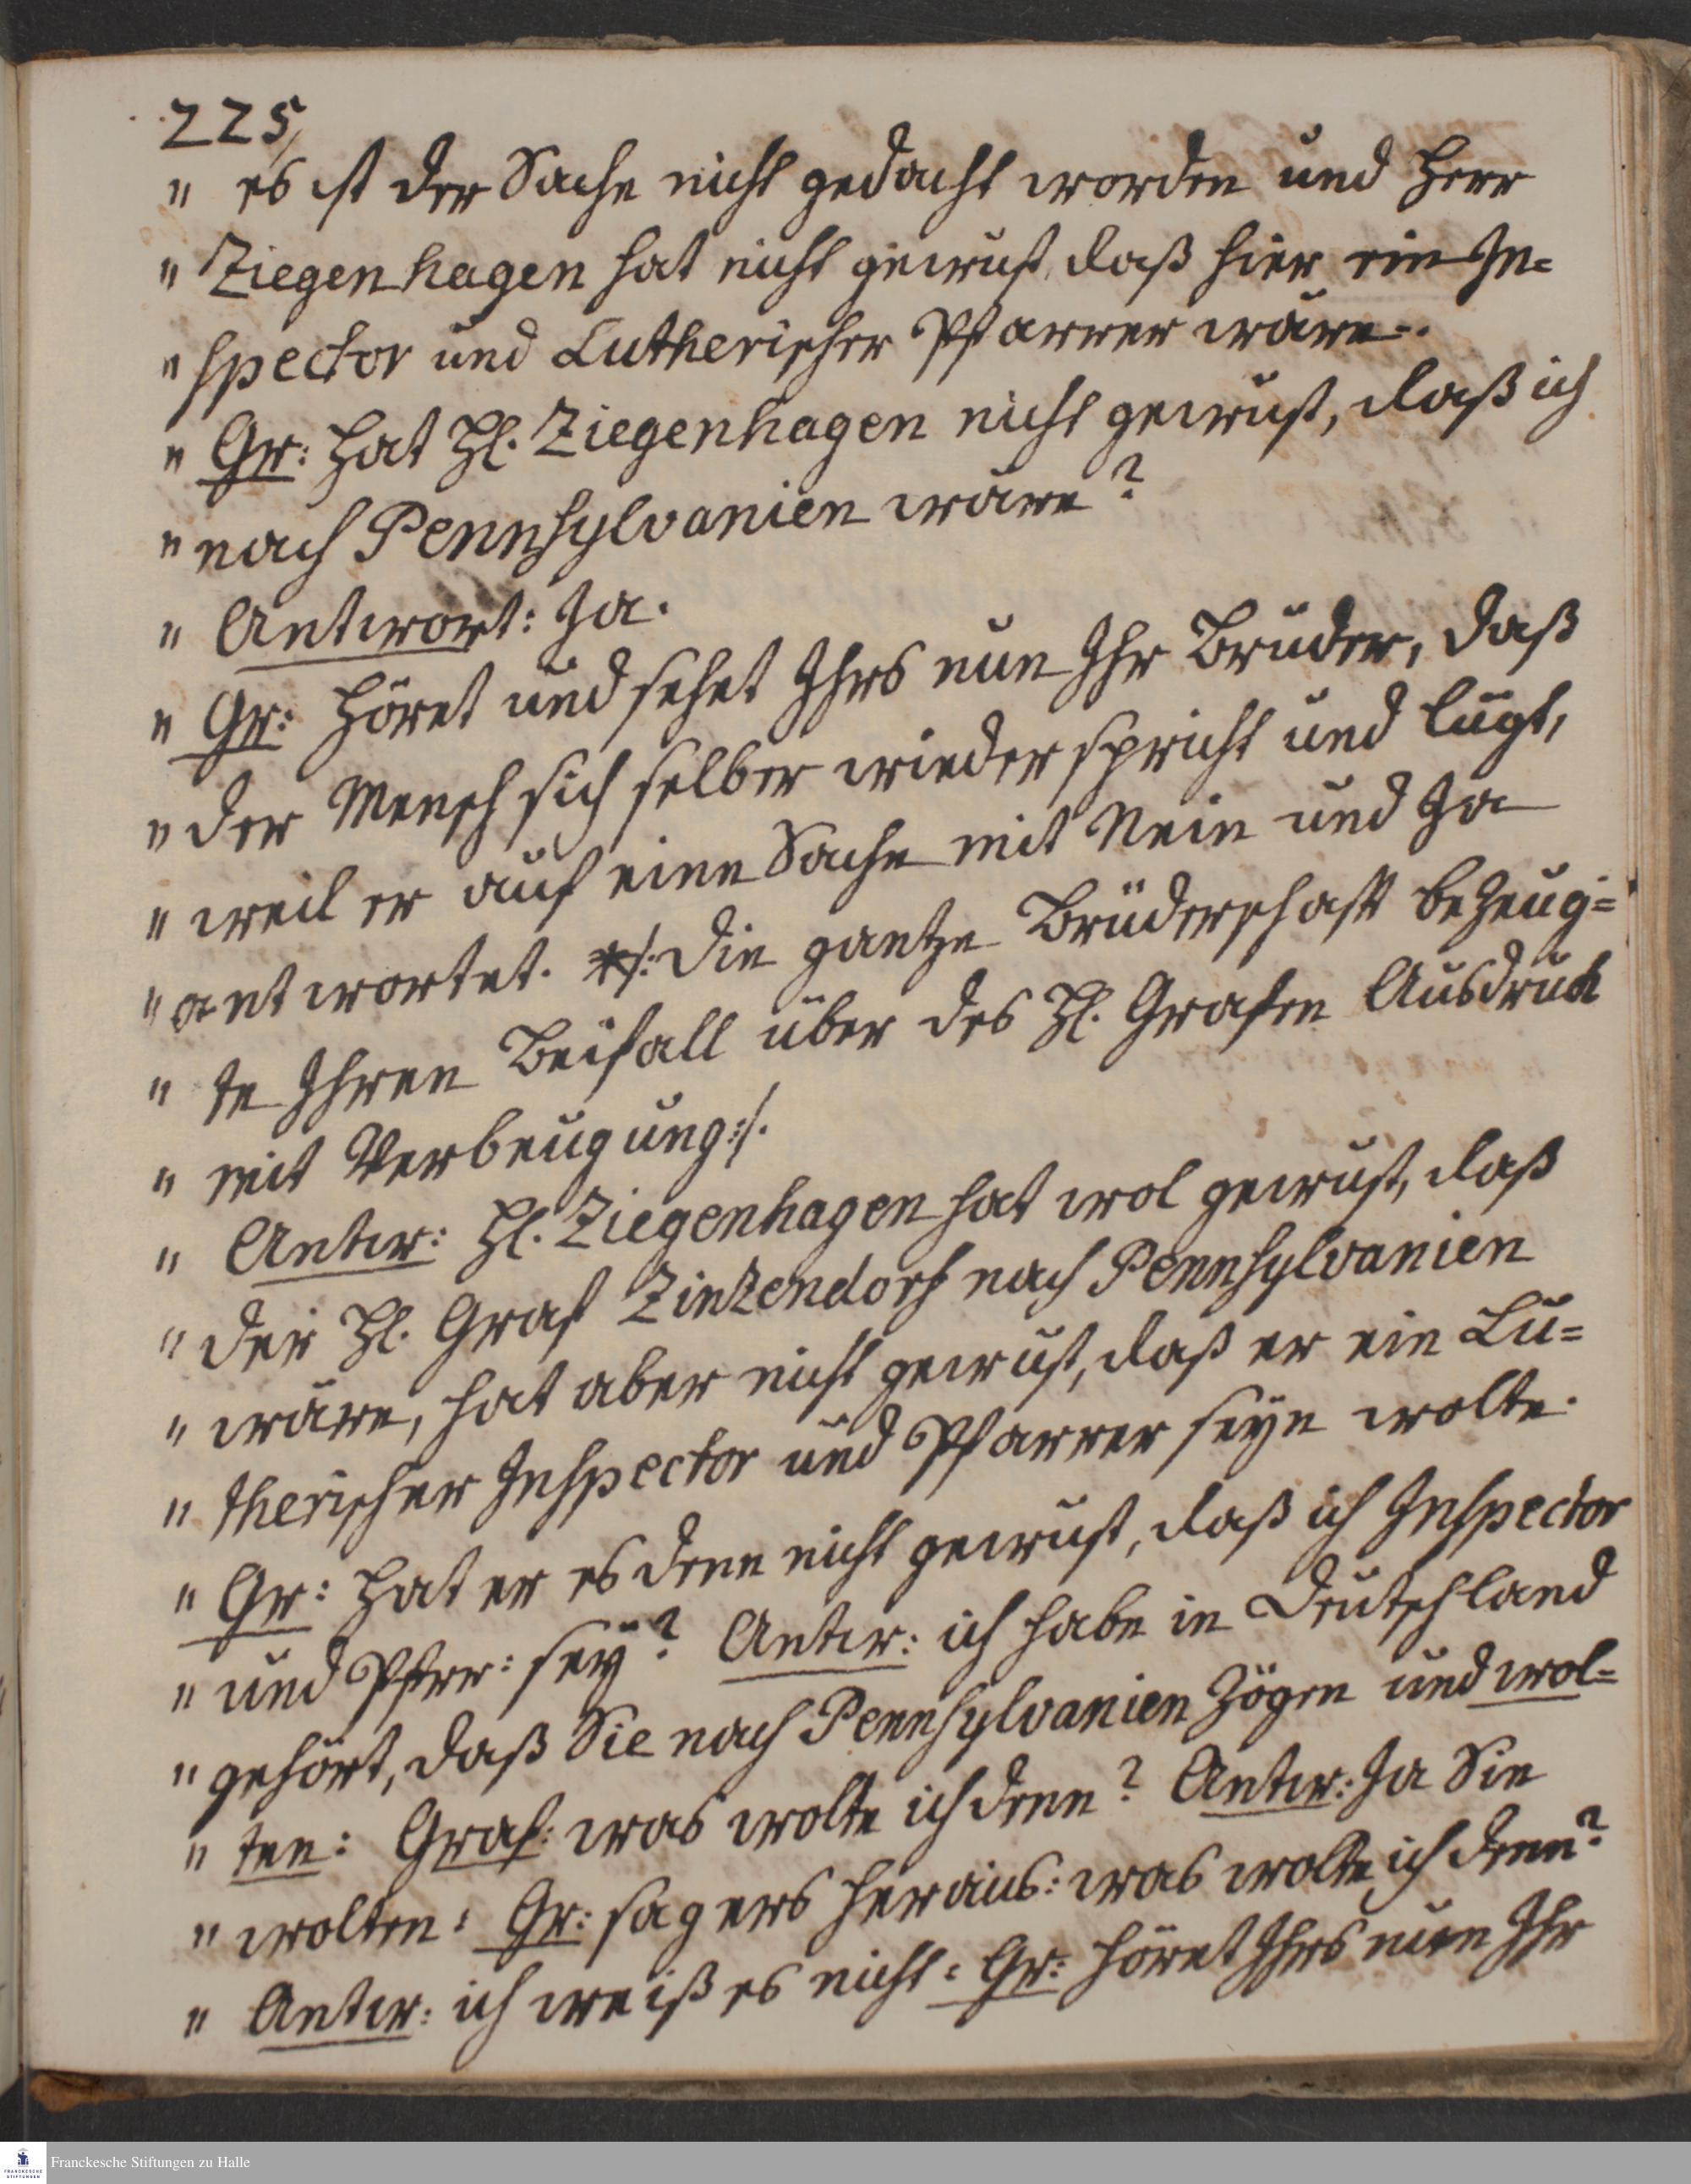 225,
" es ist der Sache nicht gedacht worden und Herr
" Ziegenhagen hat nicht gewust, daß hier ein In=
" spector und Lutherischer Pfarrer wäre.
" Gr: Hat H. Ziegenhagen nicht gewust, daß ich
" nach Pennsylvanien wäre?
" Antwort: Ja.
" Gr: Höret und sehet Ihrs nun Ihr Brüder, daß
" der Mensch sich selber wiederspricht und lügt,
" weil er auf eine Sache mit Nein und Ja
" antwortet. /: die gantze Brüderschafft bezeug=
" te Ihren Beifall über des H. Grafen Ausdruck
" mit Verbeugung :/.
" Antw: H. Ziegenhagen hat wol gewust, daß
" der H. Graf Zinzendorf nach Pennsylvanien
" wäre, hat aber nicht gewust, daß er ein Lu=
" therischer Inspector und Pfarrer seyn wolte.
" Gr: Hat er es denn nicht gewust, daß ich Inspector
" und Pfrr: seÿ? Antw: ich habe in Deutschland
" gehört, daß Sie nach Pennsylvanien zögen und wol=
" ten: Graf: was wolte ich denn? Antw: Ja Sie
" wolten: Gr: sag ers heraus: was wolte ich denn?
" Antw: ich weiß es nicht: Gr: Höret Ihrs nun Ihr
FRANCKESCHE STIFTUNGEN
Franckesche Stiftungen zu Halle